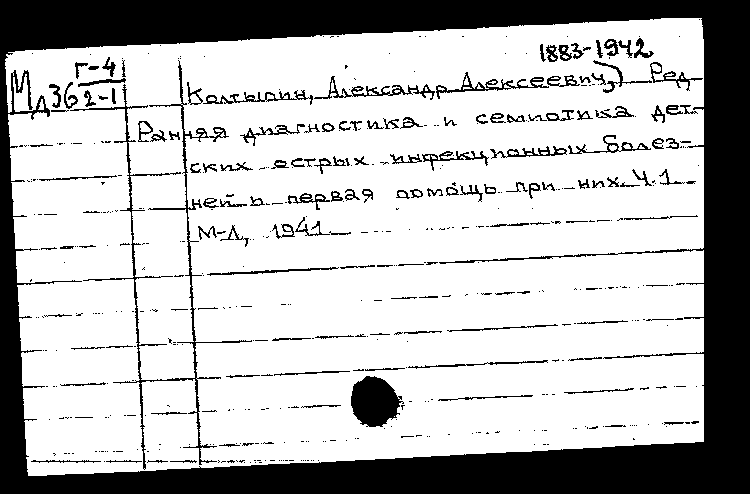 1883-1942
Г-4
Мд36 2-1
Колтыпин, Александр Алексеевич,) Ред
Ранняя диагностика и семиотика дет-
ских острых инфекционных болез-
ней и первая помощь при них. Ч.1
М-Л, 1941